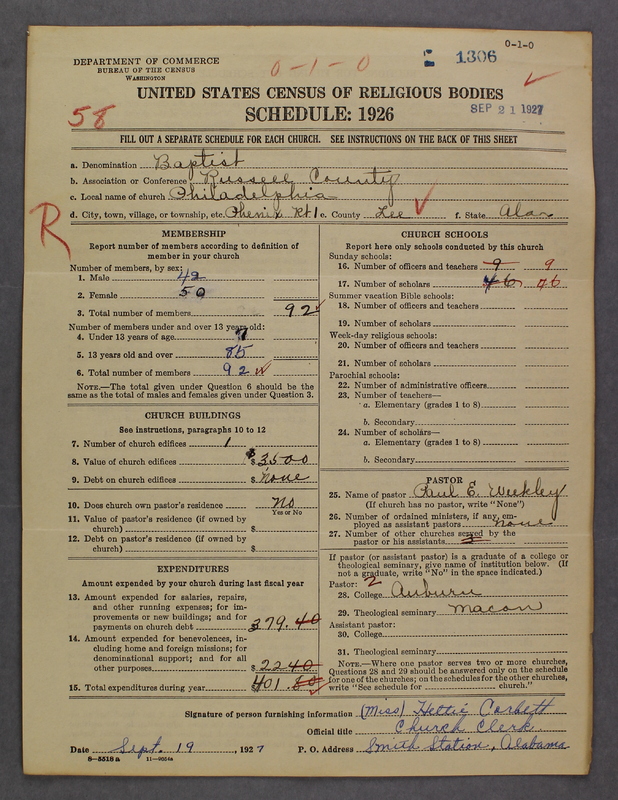 0-1-0
DEPARTMENT OF COMMERCE
BUREAU OF THE CENSUS
WASHINGTON
0-1-0
1306
UNITED STATES CENSUS OF RELIGIOUS BODIES
58
SCHEDULE: 1926
SEP 21 1927
FILL OUT A SEPARATE SCHEDULE FOR EACH CHURCH. SEE INSTRUCTIONS ON THE BACK OF THIS SHEET
a. Denomination Baptist
b. Association or Conference Russell County
c. Local name of church Philadelphia
d. City, town, village, or township, etc. Phenix Rt 1 e. County Lee f. State Ala
R
MEMBERSHIP
Report number of members according to definition of
member in your church
Number of members, by sex:
1. Male 42
2. Female 50
3. Total number of members 92
Number of members under and over 13 years old:
4. Under 13 years of age 7
5. 13 years old and over 85
6. Total number of members 92
NOTE.—The total given under Question 6 should be the
same as the total of males and females given under Question 3.
CHURCH BUILDINGS
See instructions, paragraphs 10 to 12
7. Number of church edifices 1
8. Value of church edifices $3500
9. Debt on church edifices $ none
10. Does church own pastor's residence No
Yes or No
11. Value of pastor's residence (if owned by
church) $
12. Debt on pastor's residence (if owned by
church) $
EXPENDITURES
Amount expended by your church during last fiscal year
13. Amount expended for salaries, repairs,
and other running expenses; for im-
provements or new buildings; and for
payments on church debt 379.40
14. Amount expended for benevolences, in-
cluding home and foreign missions; for
denominational support; and for all
other purposes $ 22 40
15. Total expenditures during year 401.80
CHURCH SCHOOLS
Report here only schools conducted by this church
Sunday schools:
16. Number of officers and teachers 9 9
17. Number of scholars 46 46
Summer vacation Bible schools:
18. Number of officers and teachers
19. Number of scholars
Week-day religious schools:
20. Number of officers and teachers
21. Number of scholars
Parochial schools:
22. Number of administrative officers
23. Number of teachers—
a. Elementary (grades 1 to 8)
b. Secondary
24. Number of scholars—
a. Elementary (grades 1 to 8)
b. Secondary
PASTOR
25. Name of pastor Paul E. Weekley
(If church has no pastor, write "None")
26. Number of ordained ministers, if any, em-
ployed as assistant pastors none
27. Number of other churches served by the
pastor or his assistants 3
If pastor (or assistant pastor) is a graduate of a college or
theological seminary, give name of institution below. (If
not a graduate, write "No" in the space indicated.)
Pastor: 2
28. College Auburn
29. Theological seminary Macon
Assistant pastor:
30. College
31. Theological seminary
NOTE.—Where one pastor serves two or more churches,
Questions 28 and 29 should be answered only on the schedule
for one of the churches; on the schedules for the other churches,
write "See schedule for church."
Signature of person furnishing information (Miss) Hettie Corbett
Official title Church Clerk
Date Sept. 19, 1927 P. O. Address Smith Station, Alabama
8-5518a 11-9054a